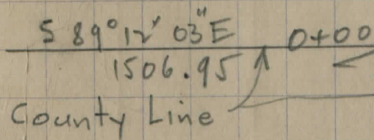 S 89° 12' 03" E 0+00
1506.95
County Line